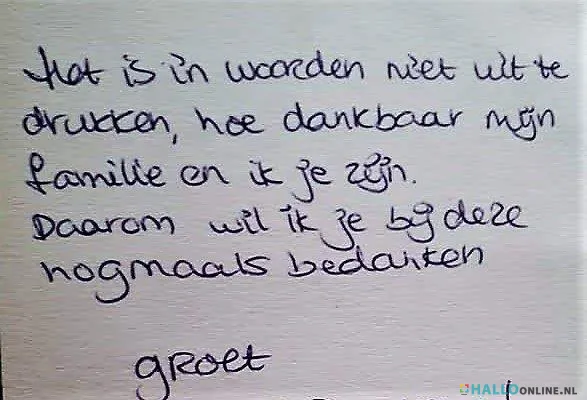 Het is in woorden niet uit te
drukken, hoe dankbaar mijn
familie en ik je zijn.
Daarom wil ik je bij deze
nogmaals bedanken
groet
HALLOONLINE.NL